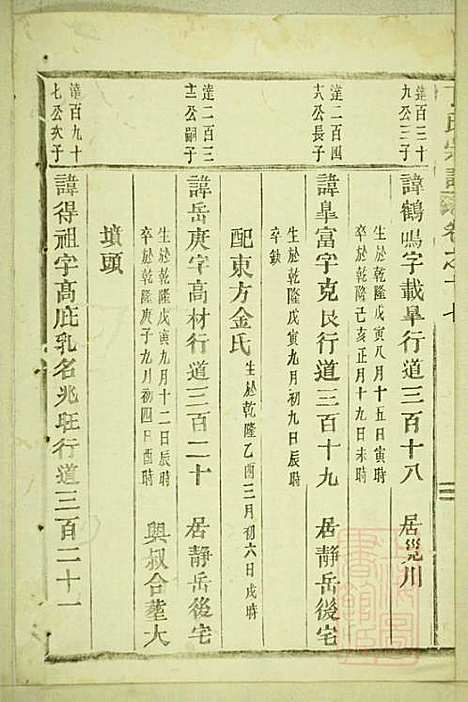 丁氏宗譜 卷之十七
達百三十
九公三子
諱鶴鳴字載臯行道三百十八 居 川
生於乾隆戊寅八月十五日寅時
卒於乾隆己亥正月十九日未時
達二百四
十六公長子
諱臯富字克良行道三百十九 居靜岳後宅
生於乾隆戊寅九月初九日辰時
卒缺
配東方金氏 生於乾隆乙酉三月初六日戌時
達二百三
十二公嗣子
諱岳庚字高材行道三百二十 居靜岳後宅
生於乾隆戊寅九月十二日辰時
卒於乾隆庚子九月初四日酉時
與叔合葬大
墳頭
達百九十
七公次子
諱得祖字高庇乳名兆旺行道三百二十一